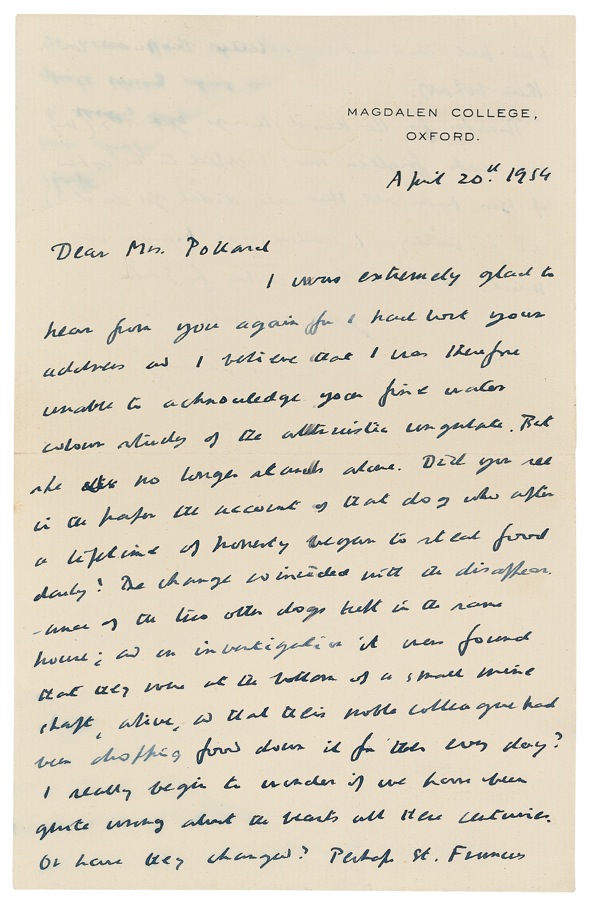 MAGDALEN COLLEGE,
OXFORD.
April 20th. 1954
Dear Mrs. Pollard
I was extremely glad to
hear from you again for I had lost your
address and I believe that I was therefore
unable to acknowledge your fine water
colour studies of the altruistic ungulate. But
she no longer stands alone. Did you see
in the paper the account of that dog who after
a lifetime of honesty began to steal food
daily? The change coincided with the disappear-
-ance of the two other dogs kept in the same
house; and on investigation it was found
that they were at the bottom of a small mine
shaft, alive, and that their noble colleague had
been dropping food down it for them every day?
I really begin to wonder if we have been
quite wrong about the beasts all these centuries.
Or have they changed? Perhaps St. Francis